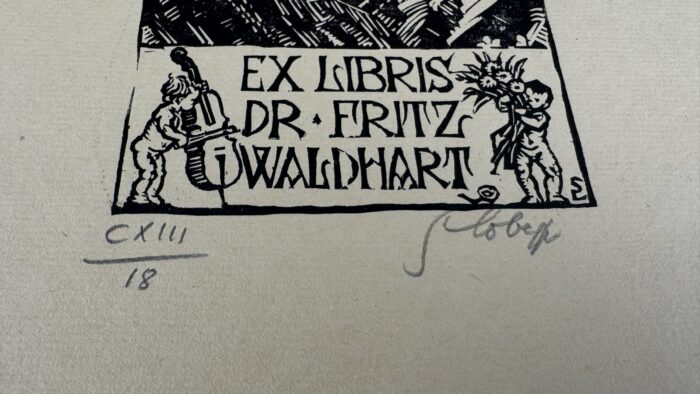 EX LIBRIS
DR · FRITZ
WALDHART
CXIII
18